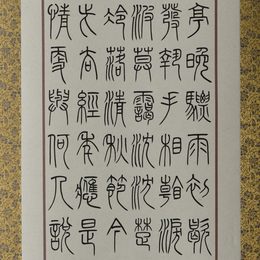 亭晚驟雨初歇
發執手相看淚
波暮靄沈沈楚
冷落清秋節今
此去經年應是
情更與何人說